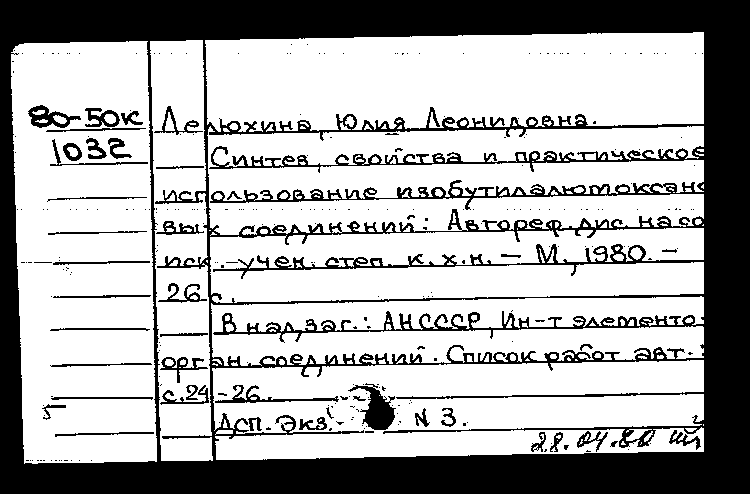 80-50к
1032
Лелюхина, Юлия Леонидовна.
Синтез, свойства и практическое
использование изобутилалюмоксано
вых соединений: Автореф. дис. на со
иск. учен. степ. к. х. н. – М., 1980. –
26 с.
В надзаг.: АН СССР, Ин-т элементо-
орган. соединений. Список работ авт.:
с. 24-26.
Дсп. Экз. N 3.
28.04.80